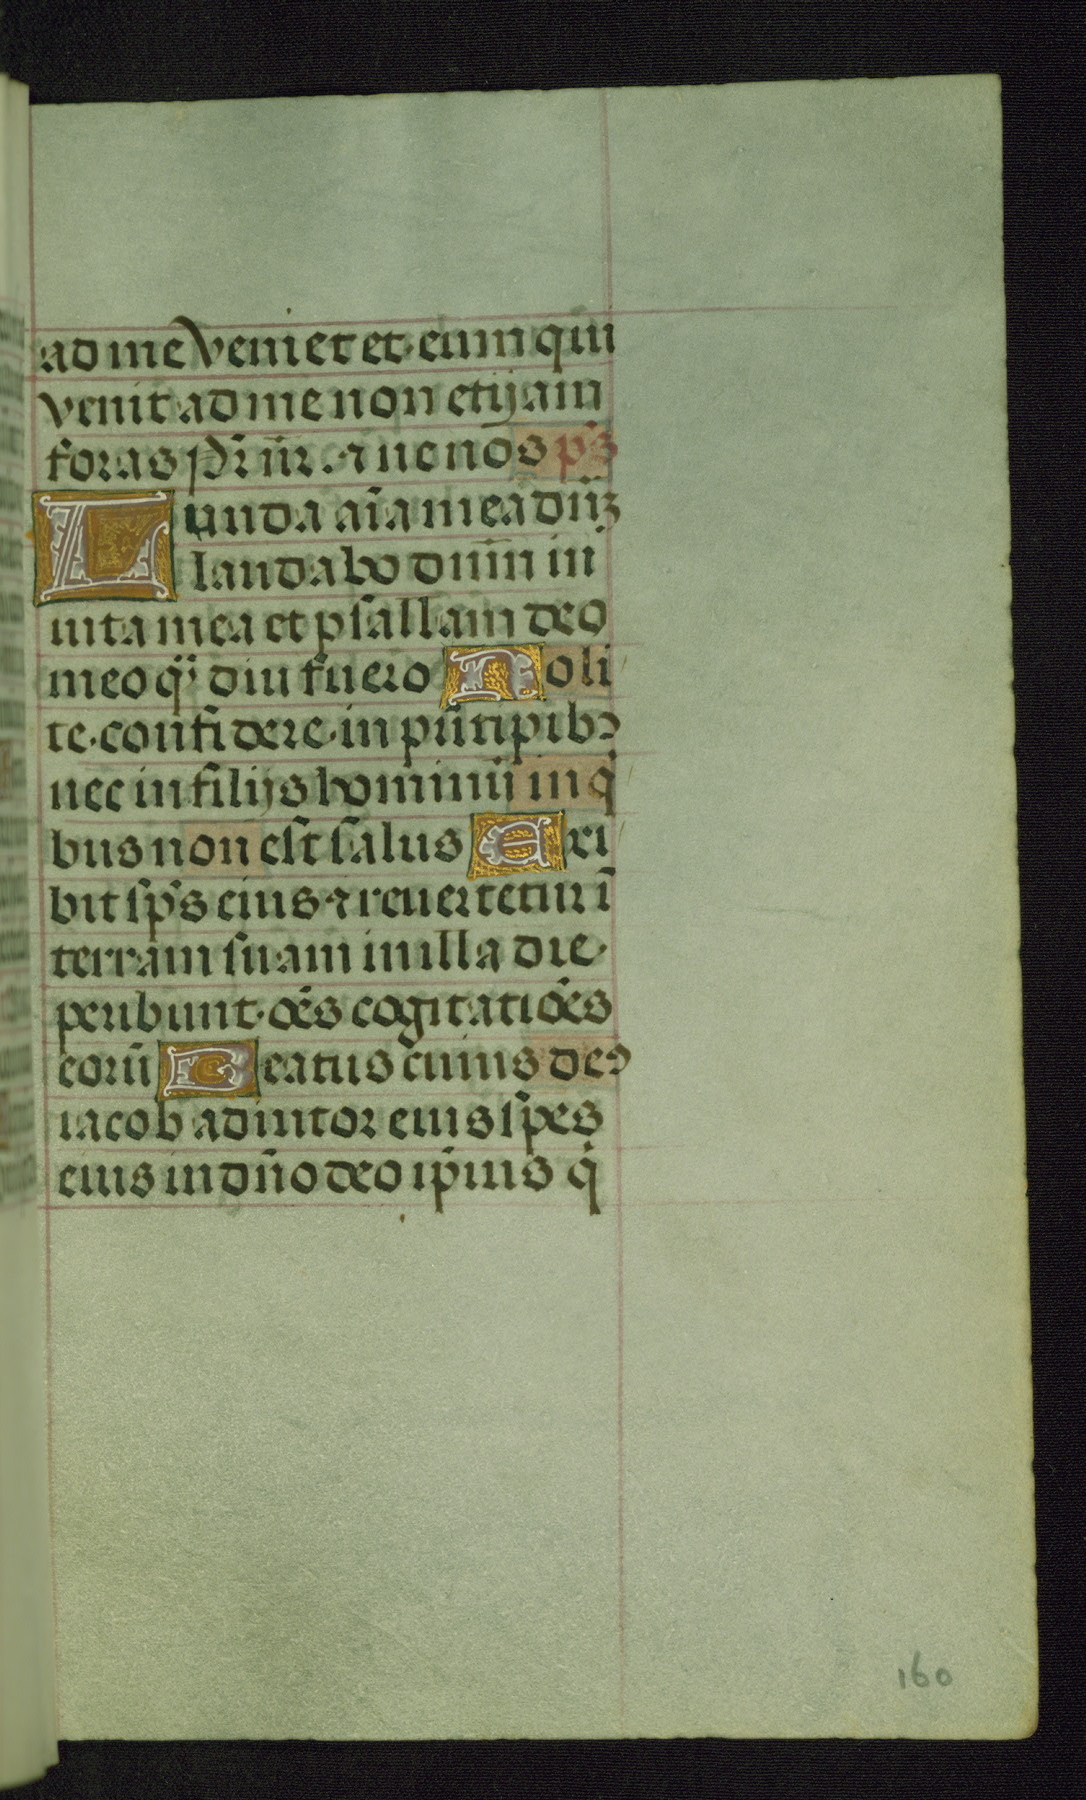 ad me veniet et eum qui
venit ad me non etijam
foras Pr̄ nr̄. ⁊ ne nos ps̄
Lauda aīa mea dn̄ꝫ
laudabo dn̄m in
uita mea et psallam deo
meo qͣdiu fuero Noli
te confidere in prīcipibꝰ
nec in filijs hominū in q
bus non est salus Exi
bit sp̄s eius ⁊ reuertetur ī
terram suam in illa die
peribunt oēs cogitatiōes
eorū Beatus cuius deꝰ
iacob adiutor eius spes
eius in dn̄o deo ip̄ius q̇
160